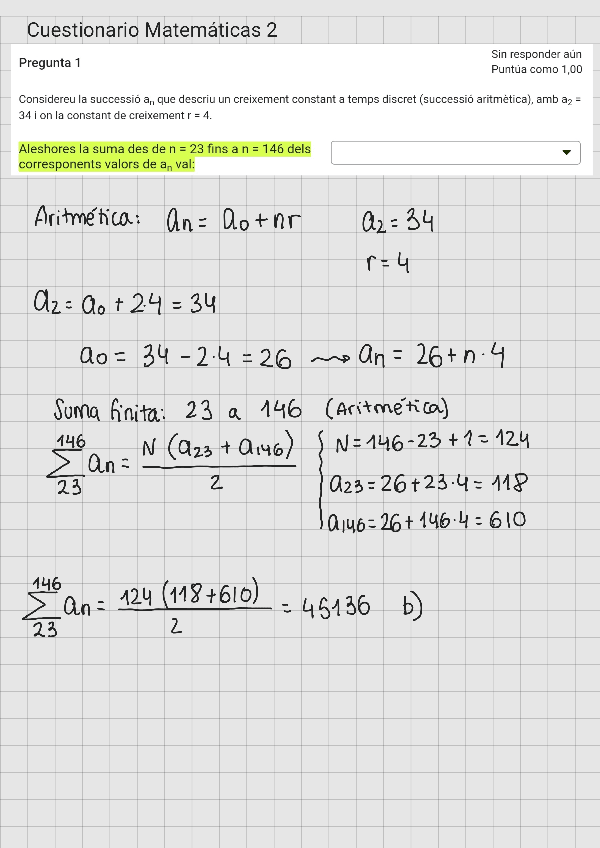 Cuestionario Matemáticas 2
Pregunta 1
Sin responder aún
Puntúa como 1,00
Considereu la successió aₙ que descriu un creixement constant a temps discret (successió aritmètica), amb a₂ =
34 i on la constant de creixement r = 4.
Aleshores la suma des de n = 23 fins a n = 146 dels
corresponents valors de aₙ val:
Aritmética: an = a₀ + nr a₂ = 34
r = 4
a₂ = a₀ + 2·4 = 34
a₀ = 34 - 2·4 = 26 ⇝ an = 26 + n·4
Suma finita: 23 a 146 (Aritmética)
146
∑ an = N (a₂₃ + a₁₄₆) / 2
23
N = 146 - 23 + 1 = 124
a₂₃ = 26 + 23·4 = 118
a₁₄₆ = 26 + 146·4 = 610
146
∑ an = 124 (118 + 610) / 2 = 45136 b)
23